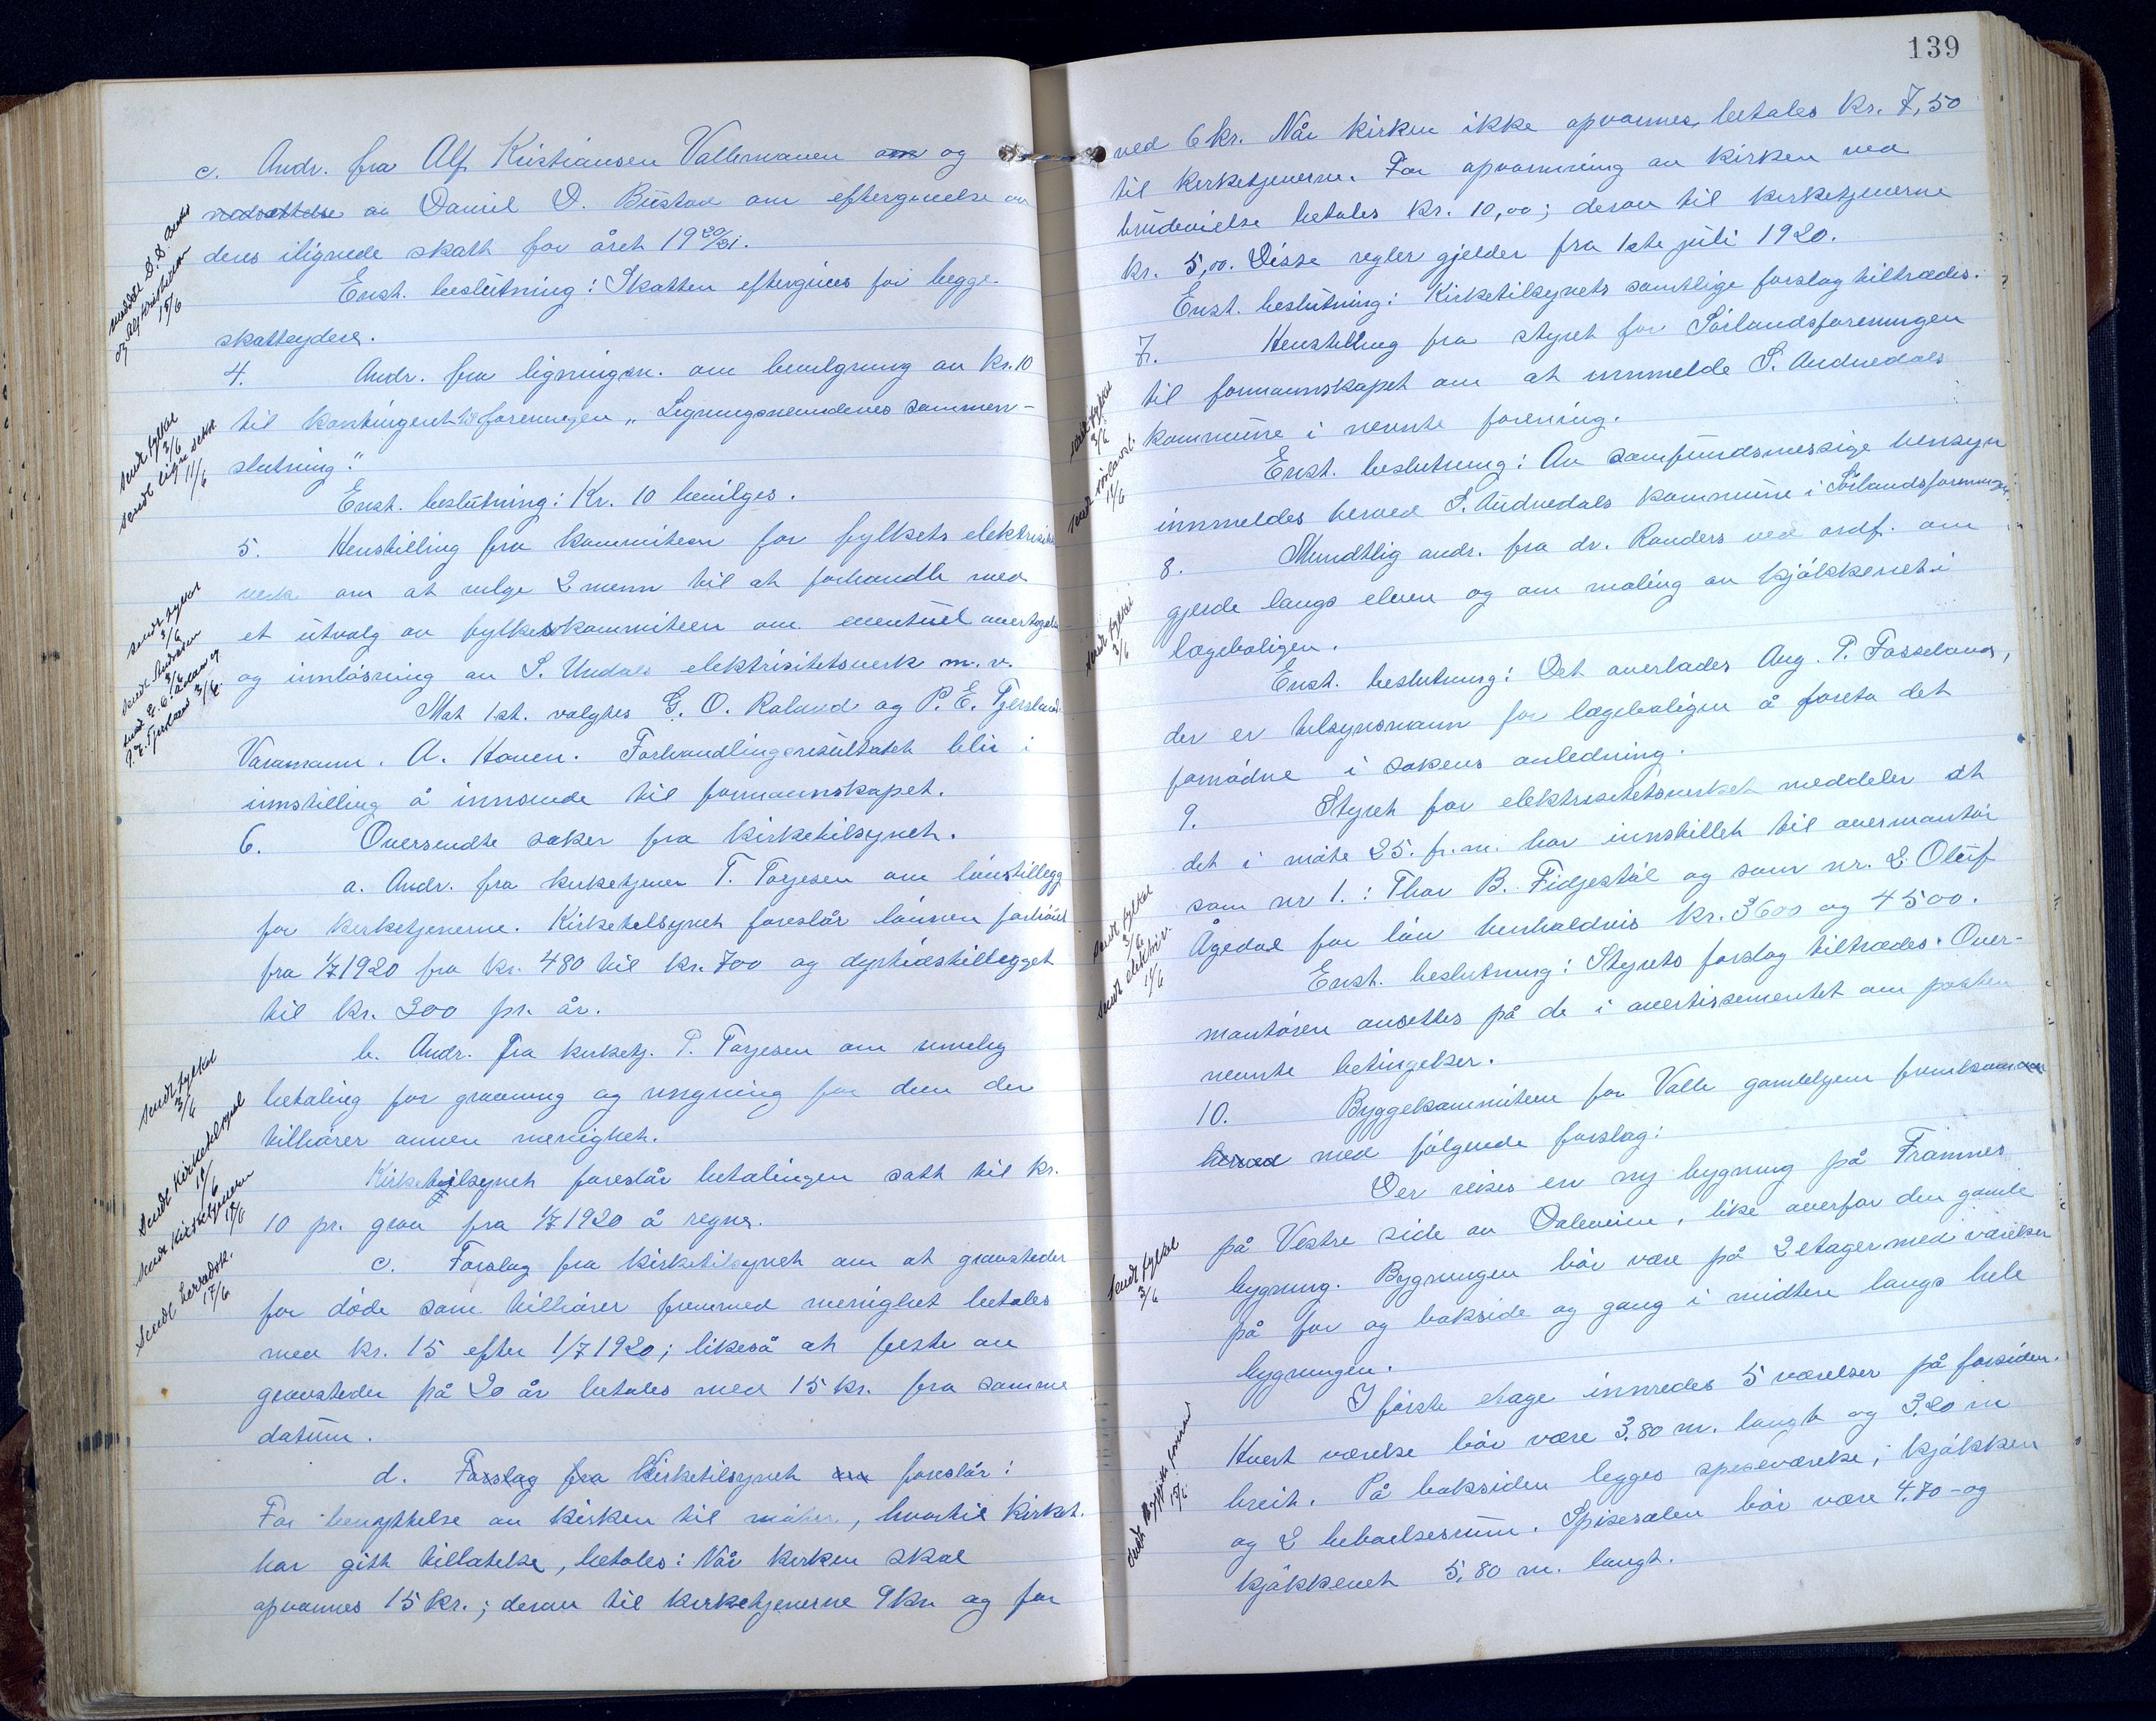 c. Andr. fra Alf Kristiansen Vallemoauen om og
nedsettelse av Daniel D. Bustad om eftergivelse av
deres ilignede skatt for året 1920/21.
Enst. beslutning: Skatten eftergives for begge
skatteydere.
4. Andr. fra ligningsn. om bevilgning av kr. 10
til kontingent til foreningen „Ligningsnemndenes sammen-
slutning".
Enst. beslutning: Kr. 10 bevilges.
5. Henstilling fra kommiteen for fylkets elektrisitets
verk om at velge 2 menn til at forhandle med
et utvalg av fylkeskommiteen om eventuel overtagelse
og innløsning av S. Undals elektrisitetsverk m. v.
Mot 1 st. valgtes G. O. Røland og P. E. Tjersland.
Varamann. A. Homen. Forhandlingsresultatet blir i
innstilling å innsende til formannskapet.
6. Oversendte saker fra kirketilsynet.
a. Andr. fra kirketjener T. Torjesen om lønstillegg
for kirketjenerne. Kirketilsynet foreslår lønnen forhøiet
fra 1/7 1920 fra kr. 480 til kr. 700 og dyrtidstillegget
til kr. 300 pr. år.
b. Andr. fra kirketj. T. Torjesen om rimelig
betaling for gravning og ringning for dem der
tilhører annen menighet.
Kirketilsynet foreslår betalingen satt til kr.
10 pr. grav fra 1/7 1920 å regne.
c. Forslag fra kirketilsynet om at gravsteder
for døde som tilhører fremmed menighet betales
med kr. 15 efter 1/7 1920; likeså at feste av
gravsteder på 20 år betales med 15 kr. fra samme
datum.
d. Forslag fra Kirketilsynet om foreslår:
For benyttelse av kirken til møter, hvortil kirket.
har gitt tillatelse, betales: Når kirken skal
opvarmes 15 kr.; derav til kirketjenerne 9 kr og for
meddelt D. D. Bustad
og Alf Kristiansen
15/6
sendt fylket
3/6
sendt lign. sekr.
11/6
sendt fylket
3/6
sendt
3/6
sendt G. O. Røland og
P. E. Tjersland 3/6.
sendt fylket
3/6
Sendt Kirketilsynet
10/6
sendt Kirketjeneren
12/6
Sendt herredsk.
17/6
139
ved 6 kr. Når kirken ikke opvarmes, betales kr. 7,50
til kirketjenerne. For opvarmning av kirken ved
brudevielse betales kr. 10,00; derav til kirketjenerne
kr. 5,00. Disse regler gjelder fra 1ste juli 1920.
Enst. beslutning: Kirketilsynets samtlige forslag tiltrædes.
7. Henstilling fra styret for Sørlandsforeningen
til formannskapet om at innmelde S. Audnedals
kommune i nevnte forening.
Enst. beslutning: Av samfundsmessige hensyn
innmeldes herved S. Audnedals kommune i Sørlandsforeningen.
8. Mundtlig andr. fra dr. Randers ved ordf. om
gjerde langs elven og om maling av kjøkkenet i
lægeboligen.
Enst. beslutning: Det overlades Aug. P. Fasseland,
der er tilsynsmann for lægeboligen å foreta det
fornødne i sakens anledning.
9. Styret for elektrisitetsverket meddeler at
det i møte 25. f.m. har innstillet til overmontør
som nr 1.: Thor B. Fidjestøl og som nr. 2 Oluf
Ågedal for løn henholdsvis kr. 3600 og 4500.
Enst. beslutning: Styrets forslag tiltrædes. Over-
montøren ansettes på de i avertissementet om posten
nevnte betingelser.
10. Byggekommiteen for Valle gamlehjem fremkommer
herved med følgende forslag:
Der reises en ny bygning på Framnes
på Vestre side av Daleveien, like overfor den gamle
bygning. Bygningen bør være på 2 etager med værelser
på for og bakside og gang i midten langs hele
bygningen.
I første etage innredes 5 værelser på forsiden.
Hvert værelse bør være 3,80 m. langt og 3,20 m
breit. På baksiden legges spiseværelse; kjøkken
og 2 beboelsesrum. Spisesalen bør være 4,70 - og
kjøkkenet 5,80 m. langt.
sendt fylket
3/6
11/6
sendt fylket
3/6
sendt fylket
3/6
sendt elektriv.
11/6
sendt fylket
3/6